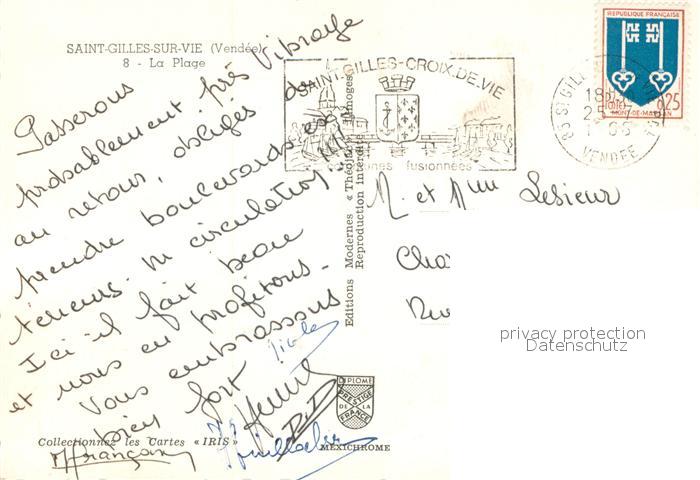 SAINT-GILLES-SUR-VIE (Vendée)
8 - La Plage
Passerons
probablement près Vibraye
au retour, obligés de
prendre boulevards
circulation
Ici il fait beau
et nous en profitons.
Vous embrassons
bien fort
Françoise
Collectionnez les Cartes « IRIS »
MEXICHROME
DIPLOME
PRESTIGE
DE LA
FRANCE
Editions Modernes « Théojac » Limoges
Reproduction interdite
SAINT-GILLES-CROIX.DE.VIE
communes fusionnées
REPUBLIQUE FRANÇAISE
0,25
POSTES
MONT-DE-MARSAN
18H
25
VENDEE
M. et Mme Lesieur
Cha
privacy protection
Datenschutz